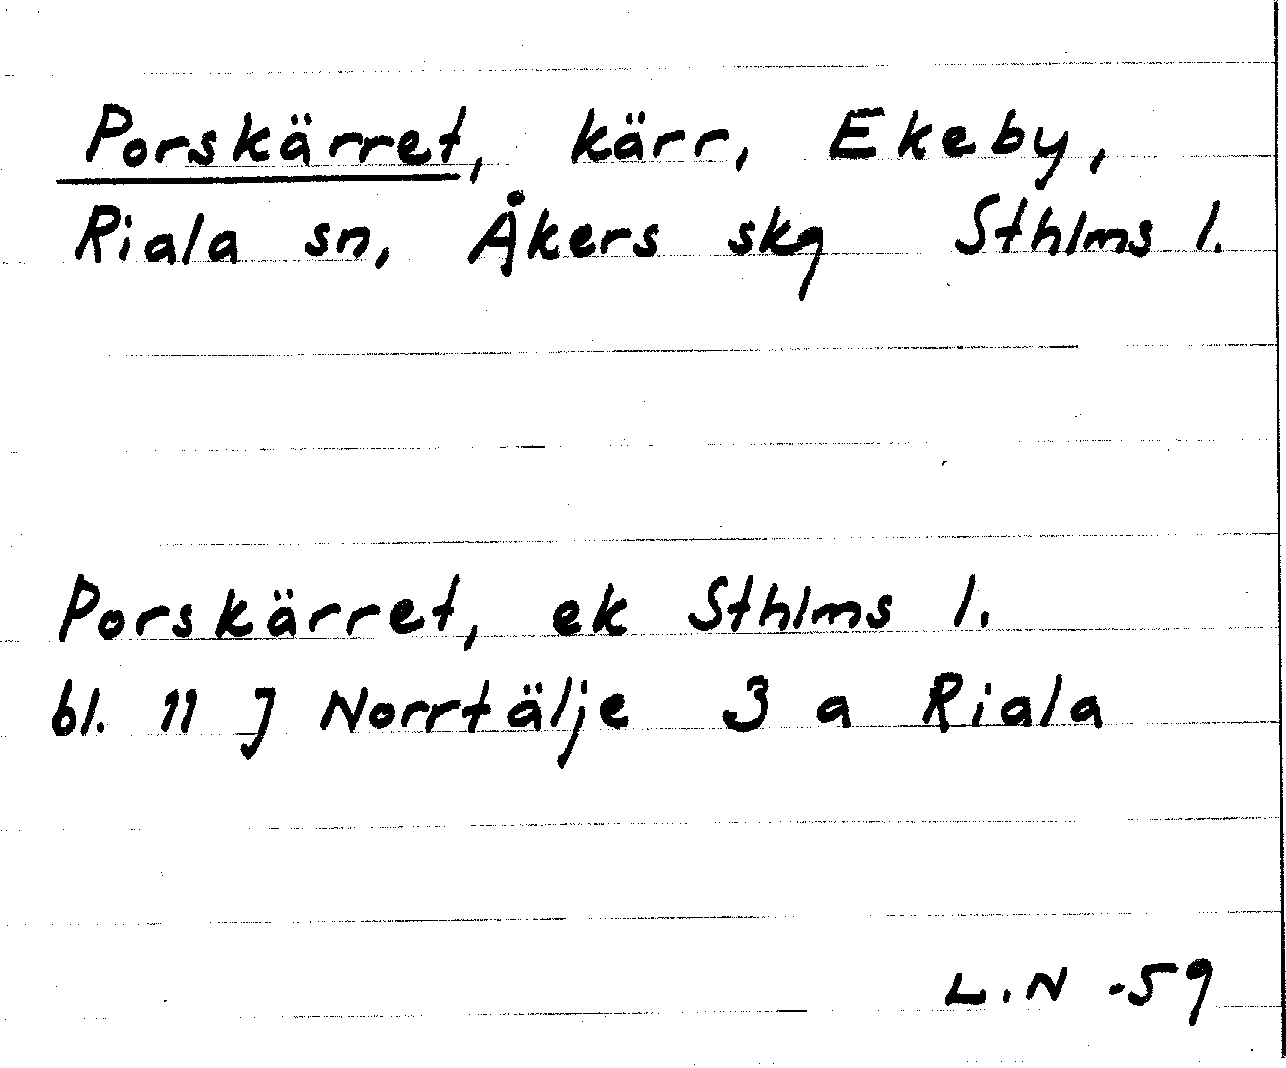 Porskärret, kärr, Ekeby,
Riala sn, Åkers skg Sthlms l.
Porskärret, ek Sthlms l.
bl. 11 J Norrtälje 3 a Riala
L.N -59